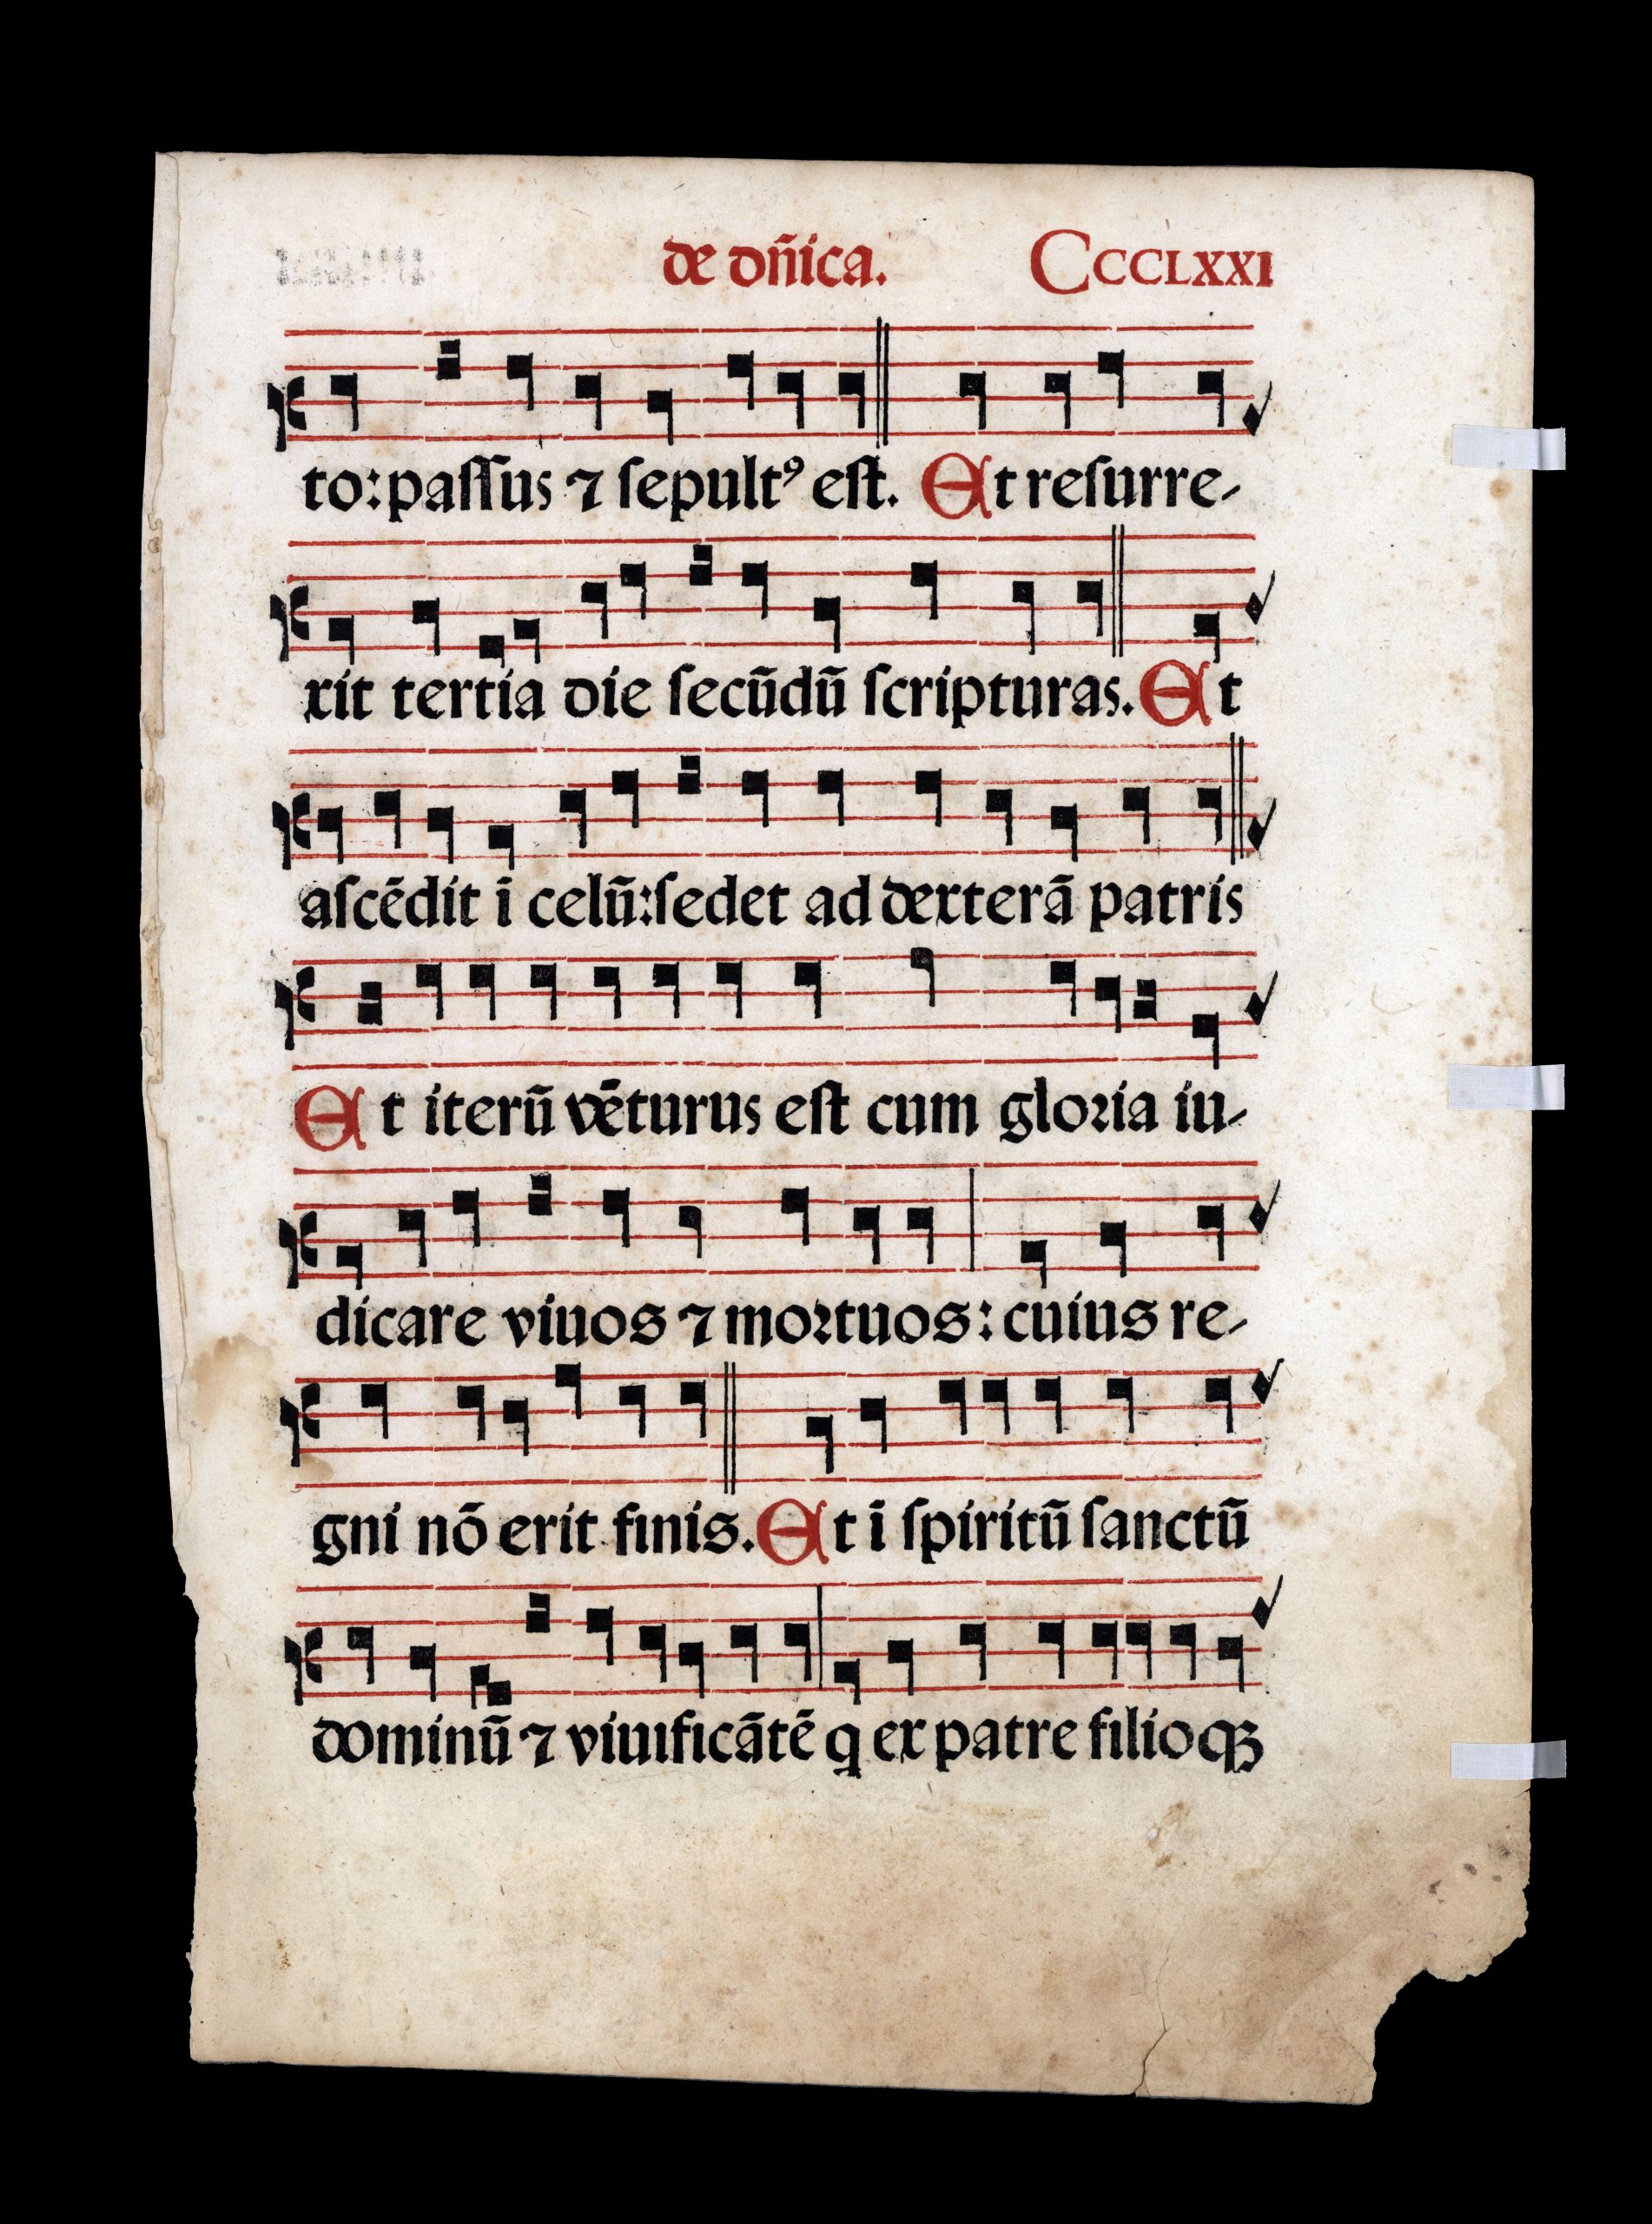 de dñica. CCCCLXXI
to: paſſus ⁊ ſepultꝰ eſt. Et reſurre-
xit tertia die ſecũdũ ſcripturas. Et
aſcẽdit ĩ celũ: ſedet ad dexterã patris
Et iterũ vẽturus eſt cum gloꝛia iu-
dicare viuos ⁊ moꝛtuos: cuius re-
gni nõ erit finis. Et ĩ ſpiritũ ſanctũ
dominũ ⁊ viuificãtẽ q ex patre filioqꝫ